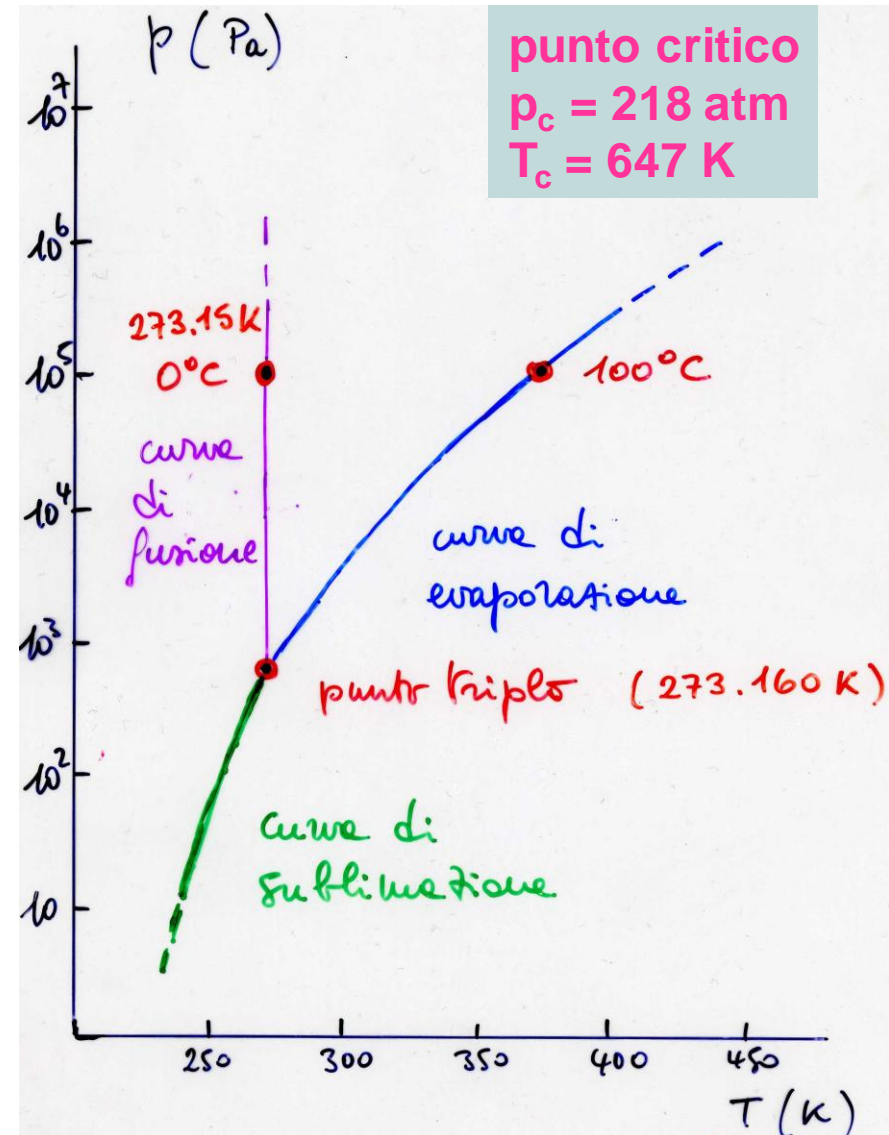 p (Pa)
punto critico
p_c = 218 atm
T_c = 647 K
10^7
10^6
273.15K
10^5
0°C
100°C
curva
di
fusione
10^4
curva di
evaporazione
10^3
punto triplo (273.160 K)
10^2
curva di
sublimazione
10
250 300 350 400 450
T (K)